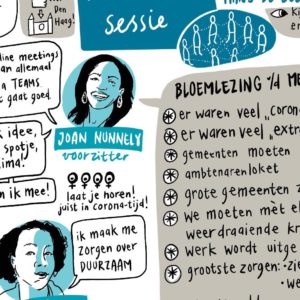 Den
Haag!
sessie
line meeting
an allemaal
a TEAMS
t gaat goed.
k idee,
spotje,
ima!
n ik mee!
JOAN NUNNELY
voorzitter
laat je horen!
juist in corona-tijd!
ik maak me
zorgen over
DUURZAAM
BLOEMLEZING v/d ME
er waren veel "coron
er waren veel "extr
gemeenten moeten
ambtenarenloket
grote gemeenten z
we moeten mèt el
weerdraaiende kr
werk wordt uitge
grootste zorgen: - zie
- we